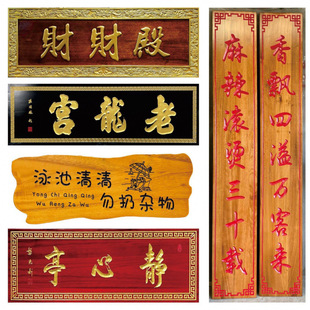 財財殿
老龍宮
泳池清清
Yong Chi Qing Qing
勿扔杂物
Wu Rang Za Wu
靜心亭
香飄四溢万客来
麻辣滚燙三十载